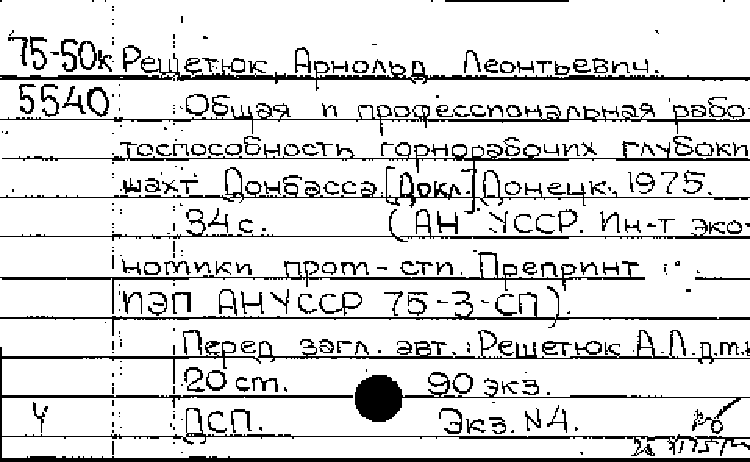 75-50к Решетюк Арнольд Леонтьевич.
5540 Общая и профессиональная рабо-
тоспособность горнорабочих глубоки
шахт Донбасса. [Докл.] Донецк. 1975.
34 с. (АН УССР. Ин-т эко-
номики пром-сти. Препринт
ИЭП АН УССР 75-3-СП).
Перед загл. авт.: Решетюк А.Л. д.м.н
20 см. 90 экз.
Ч ДСП. Экз. N4.